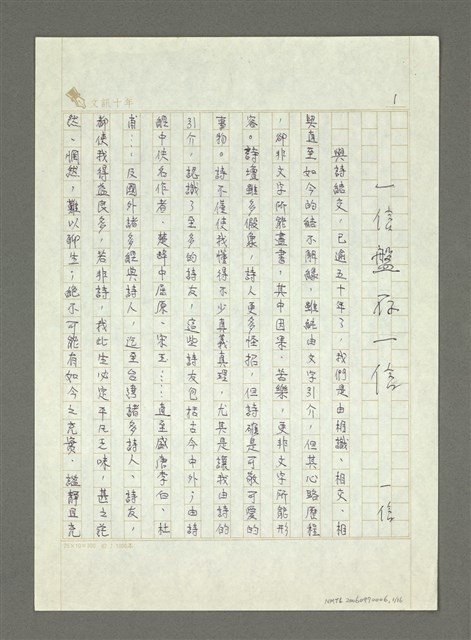 文訊十年
1
一信盤存一信
一信
與詩結交，已逾五十年了，我們是由相識、相交、相
契直至如今的結不解緣，雖純由文字引介，但其心路歷程
，卻非文字所能盡書，其中因果、苦樂，更非文字所能形
容。詩壇雖多假象，詩人更多怪招，但詩確是可敬可愛的
事物。詩不僅使我懂得不少真義真理，尤其是讓我由詩的
引介，認識了至多的詩友，這些詩友包括古今中外；由詩
經中佚名作者、楚辭中屈原、宋玉……直至盛唐李白、杜
甫……及國外諸多經典詩人，迄至台灣諸多詩人、詩友，
都使我得益良多，若非詩，我此生必定平凡乏味，甚之茫
然、惘然，難以聊生；絕不可能有如今之充實、謐靜且充
NMTL 20060970006, 1/16